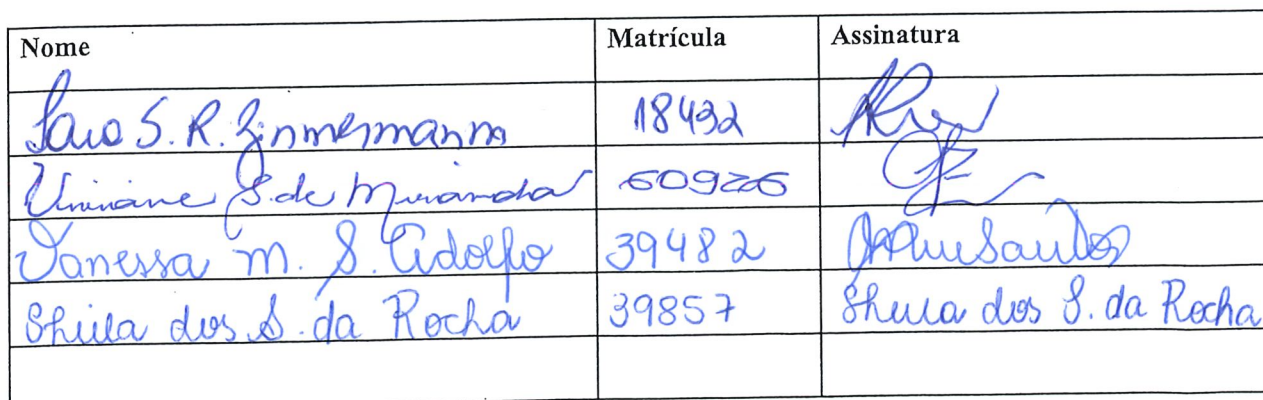 Nome Matrícula Assinatura
S. R. Zinmermann 18432
Viviane S. de Miranda 60926
Vanessa M. S. Adolfo 39482
Sheila dos S. da Rocha 39857 Sheila dos S. da Rocha